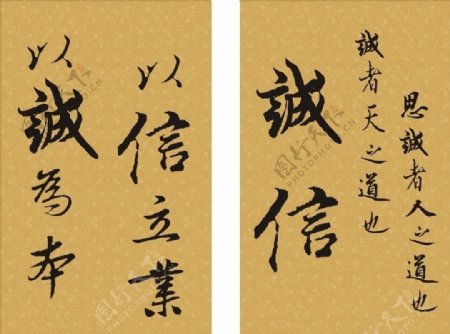 以誠為本
以信立業
誠信
誠者天之道也
思誠者人之道也
图行天下
PHOTOPHOTO.CN